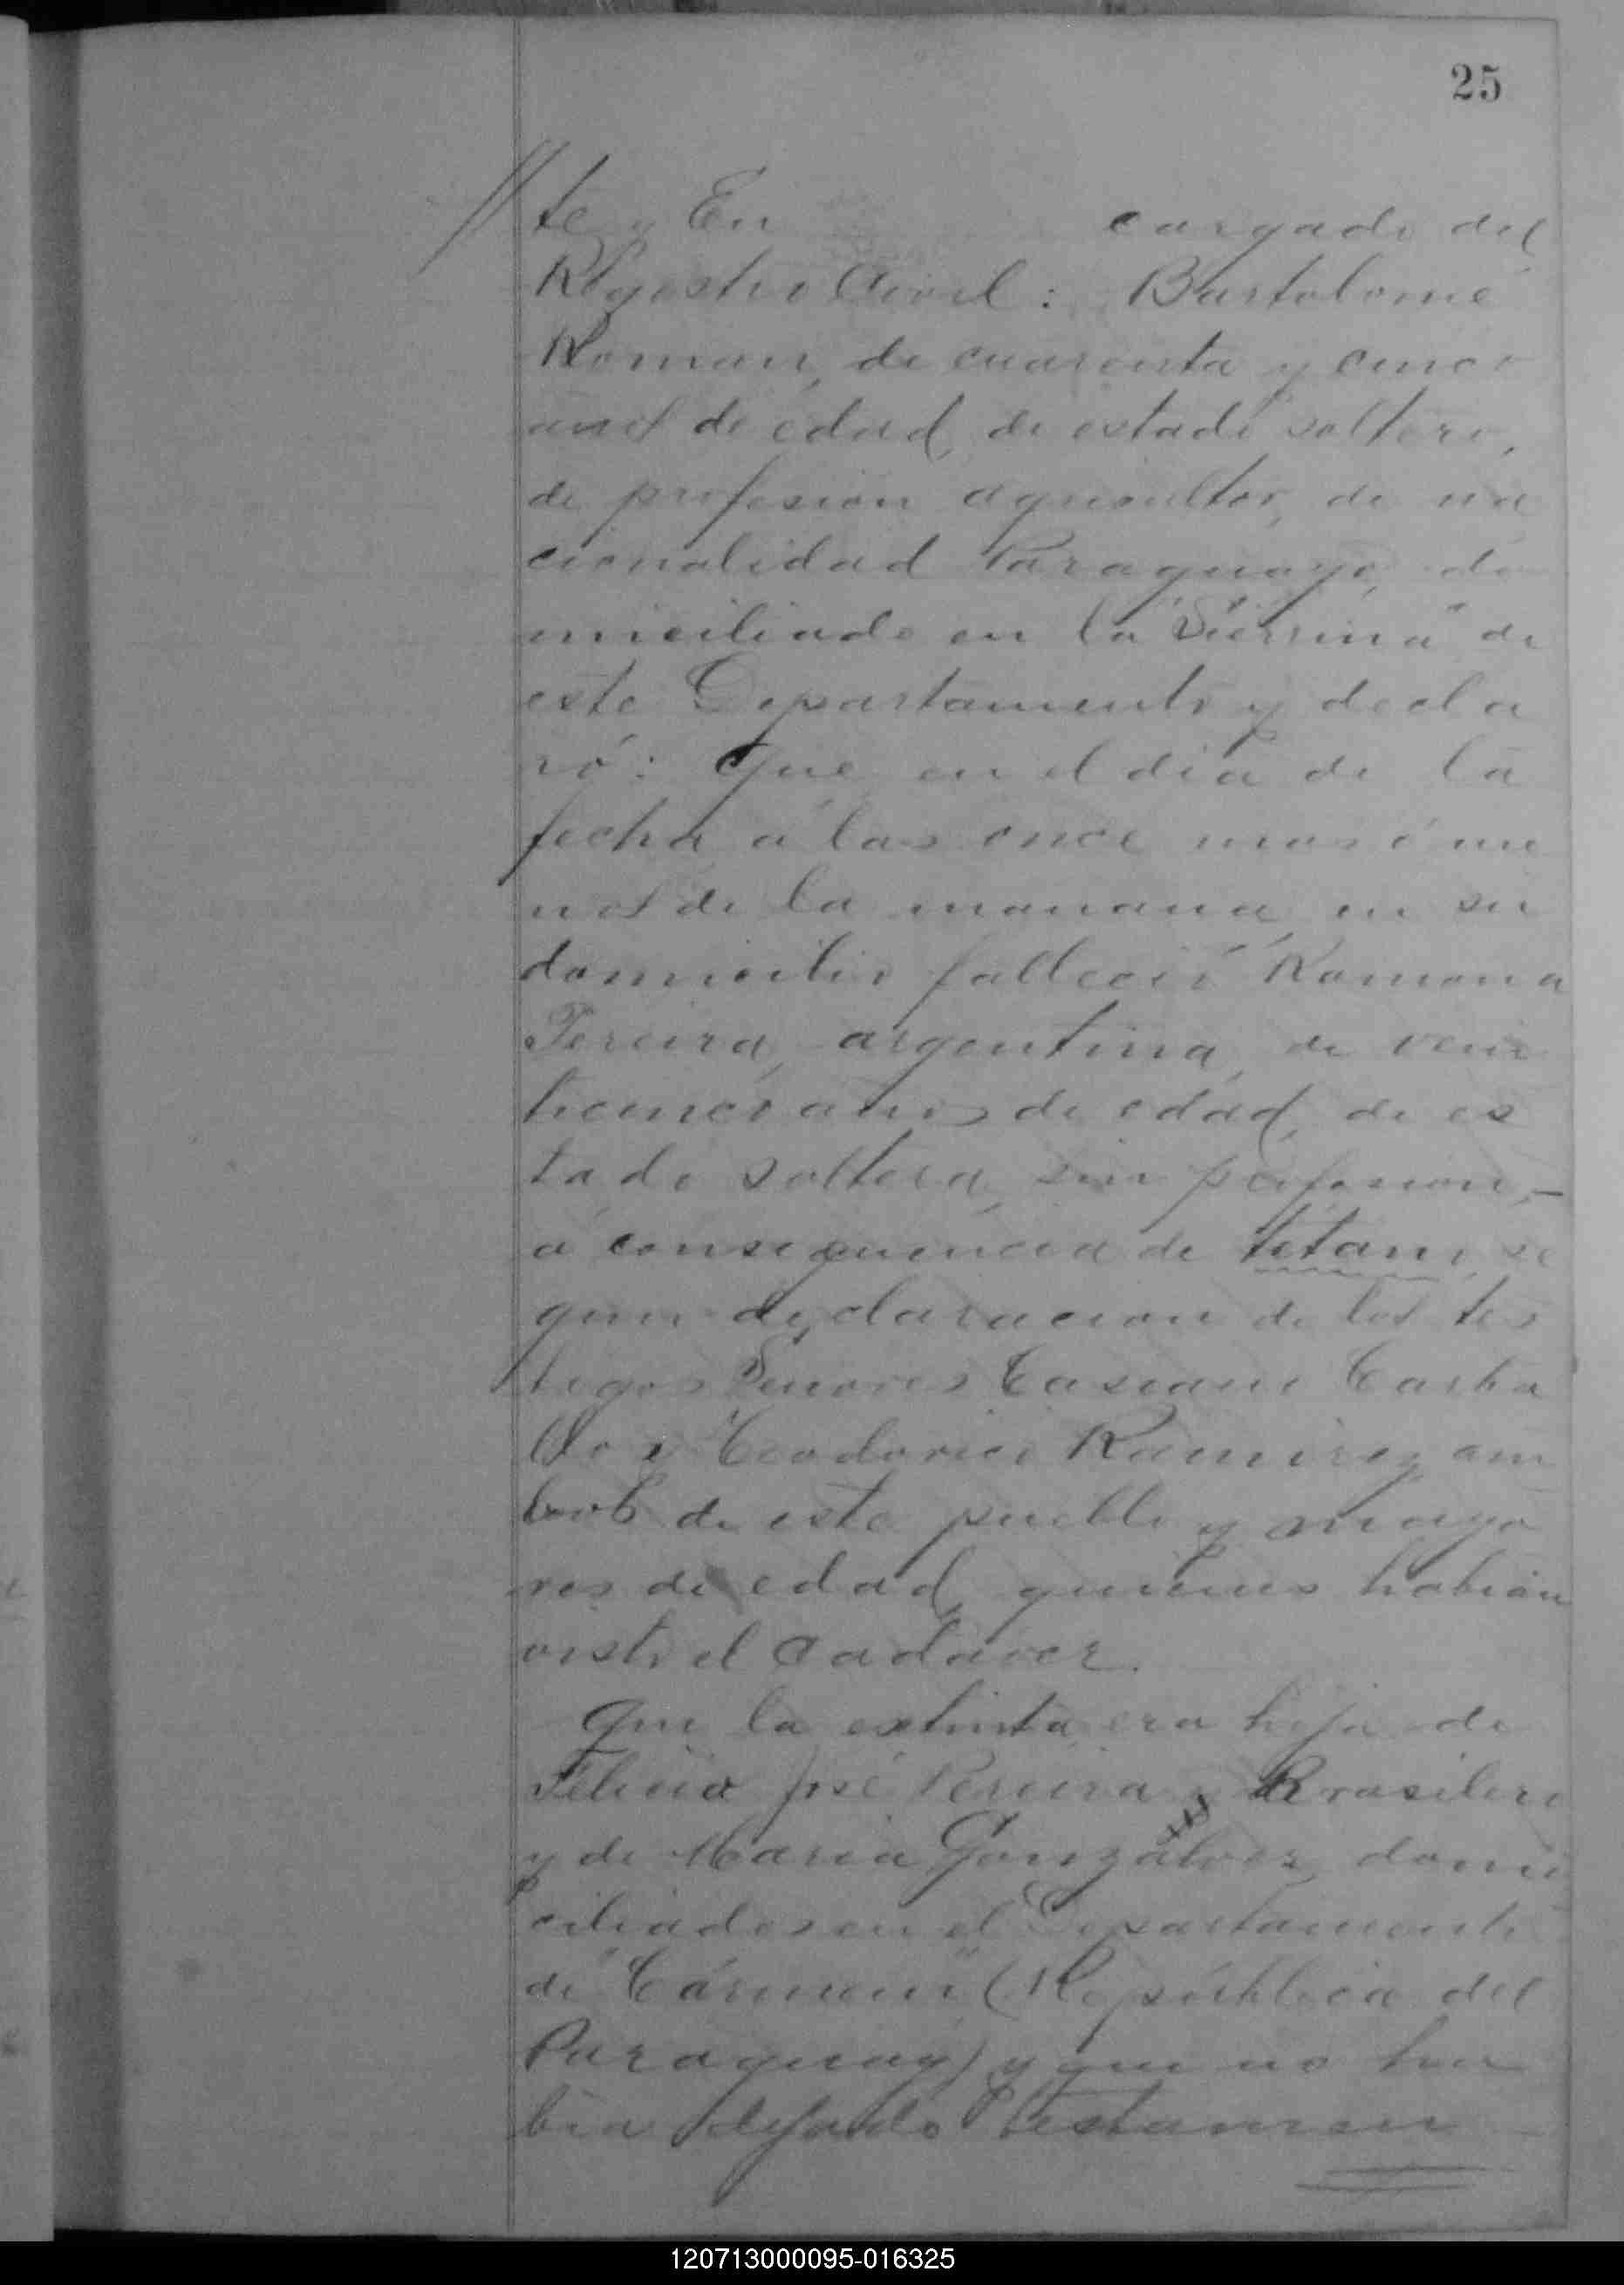 25
//te y En cargado del
Registro Civil: Bartolomé
Roman, de cuarenta y cinco
años de edad, de estado soltero,
de profesion agricultor, de na
cionalidad Paraguayo, do
miciliado en la "Sierrina" de
este Departamento y decla
ró: Que en el dia de la
fecha á las once mas ó me
nos de la manana, en su
domicilio falleció Ramona
Pereira, argentina, de vein
ticinco años de edad, de es
tado soltera, sin profesion,-
á consequencia de tétano, se
gun declaracion de los tes
tigos Señores Casiano Carba
llo y Teodorico Ramirez am
bos de este pueblo y mayo
res de edad, quienes habian
visto el cadáver.
Que la extinta era hija de
José Pereira, Brasilero
y de Maria Gonzálvez, domi
ciliados en el Departamento
de "Cármen" (República del
Paraguay) y que no ha
bia dejado testamen
120713000095-016325